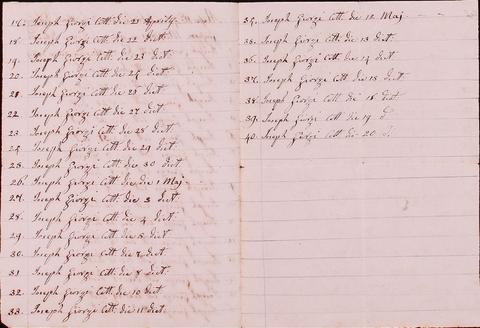 17. Joseph Giorgi Cott. die 21 Aprily
18. Joseph Giorgi Cott. die 22 dict.
19. Joseph Giorgi Cott. die 23 dict.
20. Joseph Giorgi Cott. die 24 dict.
21. Joseph Giorgi Cott. die 25 dict.
22. Joseph Giorgi Cott. die 27 dict.
23. Joseph Giorgi Cott. die 28 dict.
24. Joseph Giorgi Cott. die 29 dict.
25. Joseph Giorgi Cott. die 30 dict.
26. Joseph Giorgi Cott. die die 1 Maj
27. Joseph Giorgi Cott. die 3 dict.
28. Joseph Giorgi Cott. die 4 dict.
29. Joseph Giorgi Cott. die dict.
30. Joseph Giorgi Cott. die 7 dict.
31. Joseph Giorgi Cott. die 8 dict.
32. Joseph Giorgi Cott. die 10 dict.
33. Joseph Giorgi Cott. die 11 dict.
34. Joseph Giorgi Cott. die 12 Maj
35. Joseph Giorgi Cott. die 13 dict.
36. Joseph Giorgi Cott. die 14 dict.
37. Joseph Giorgi Cott. die 15 dict.
38. Joseph Giorgi Cott. die 18 dict.
39. Joseph Giorgi Cott. die 19 d.
40. Joseph Giorgi Cott. die 20 d.